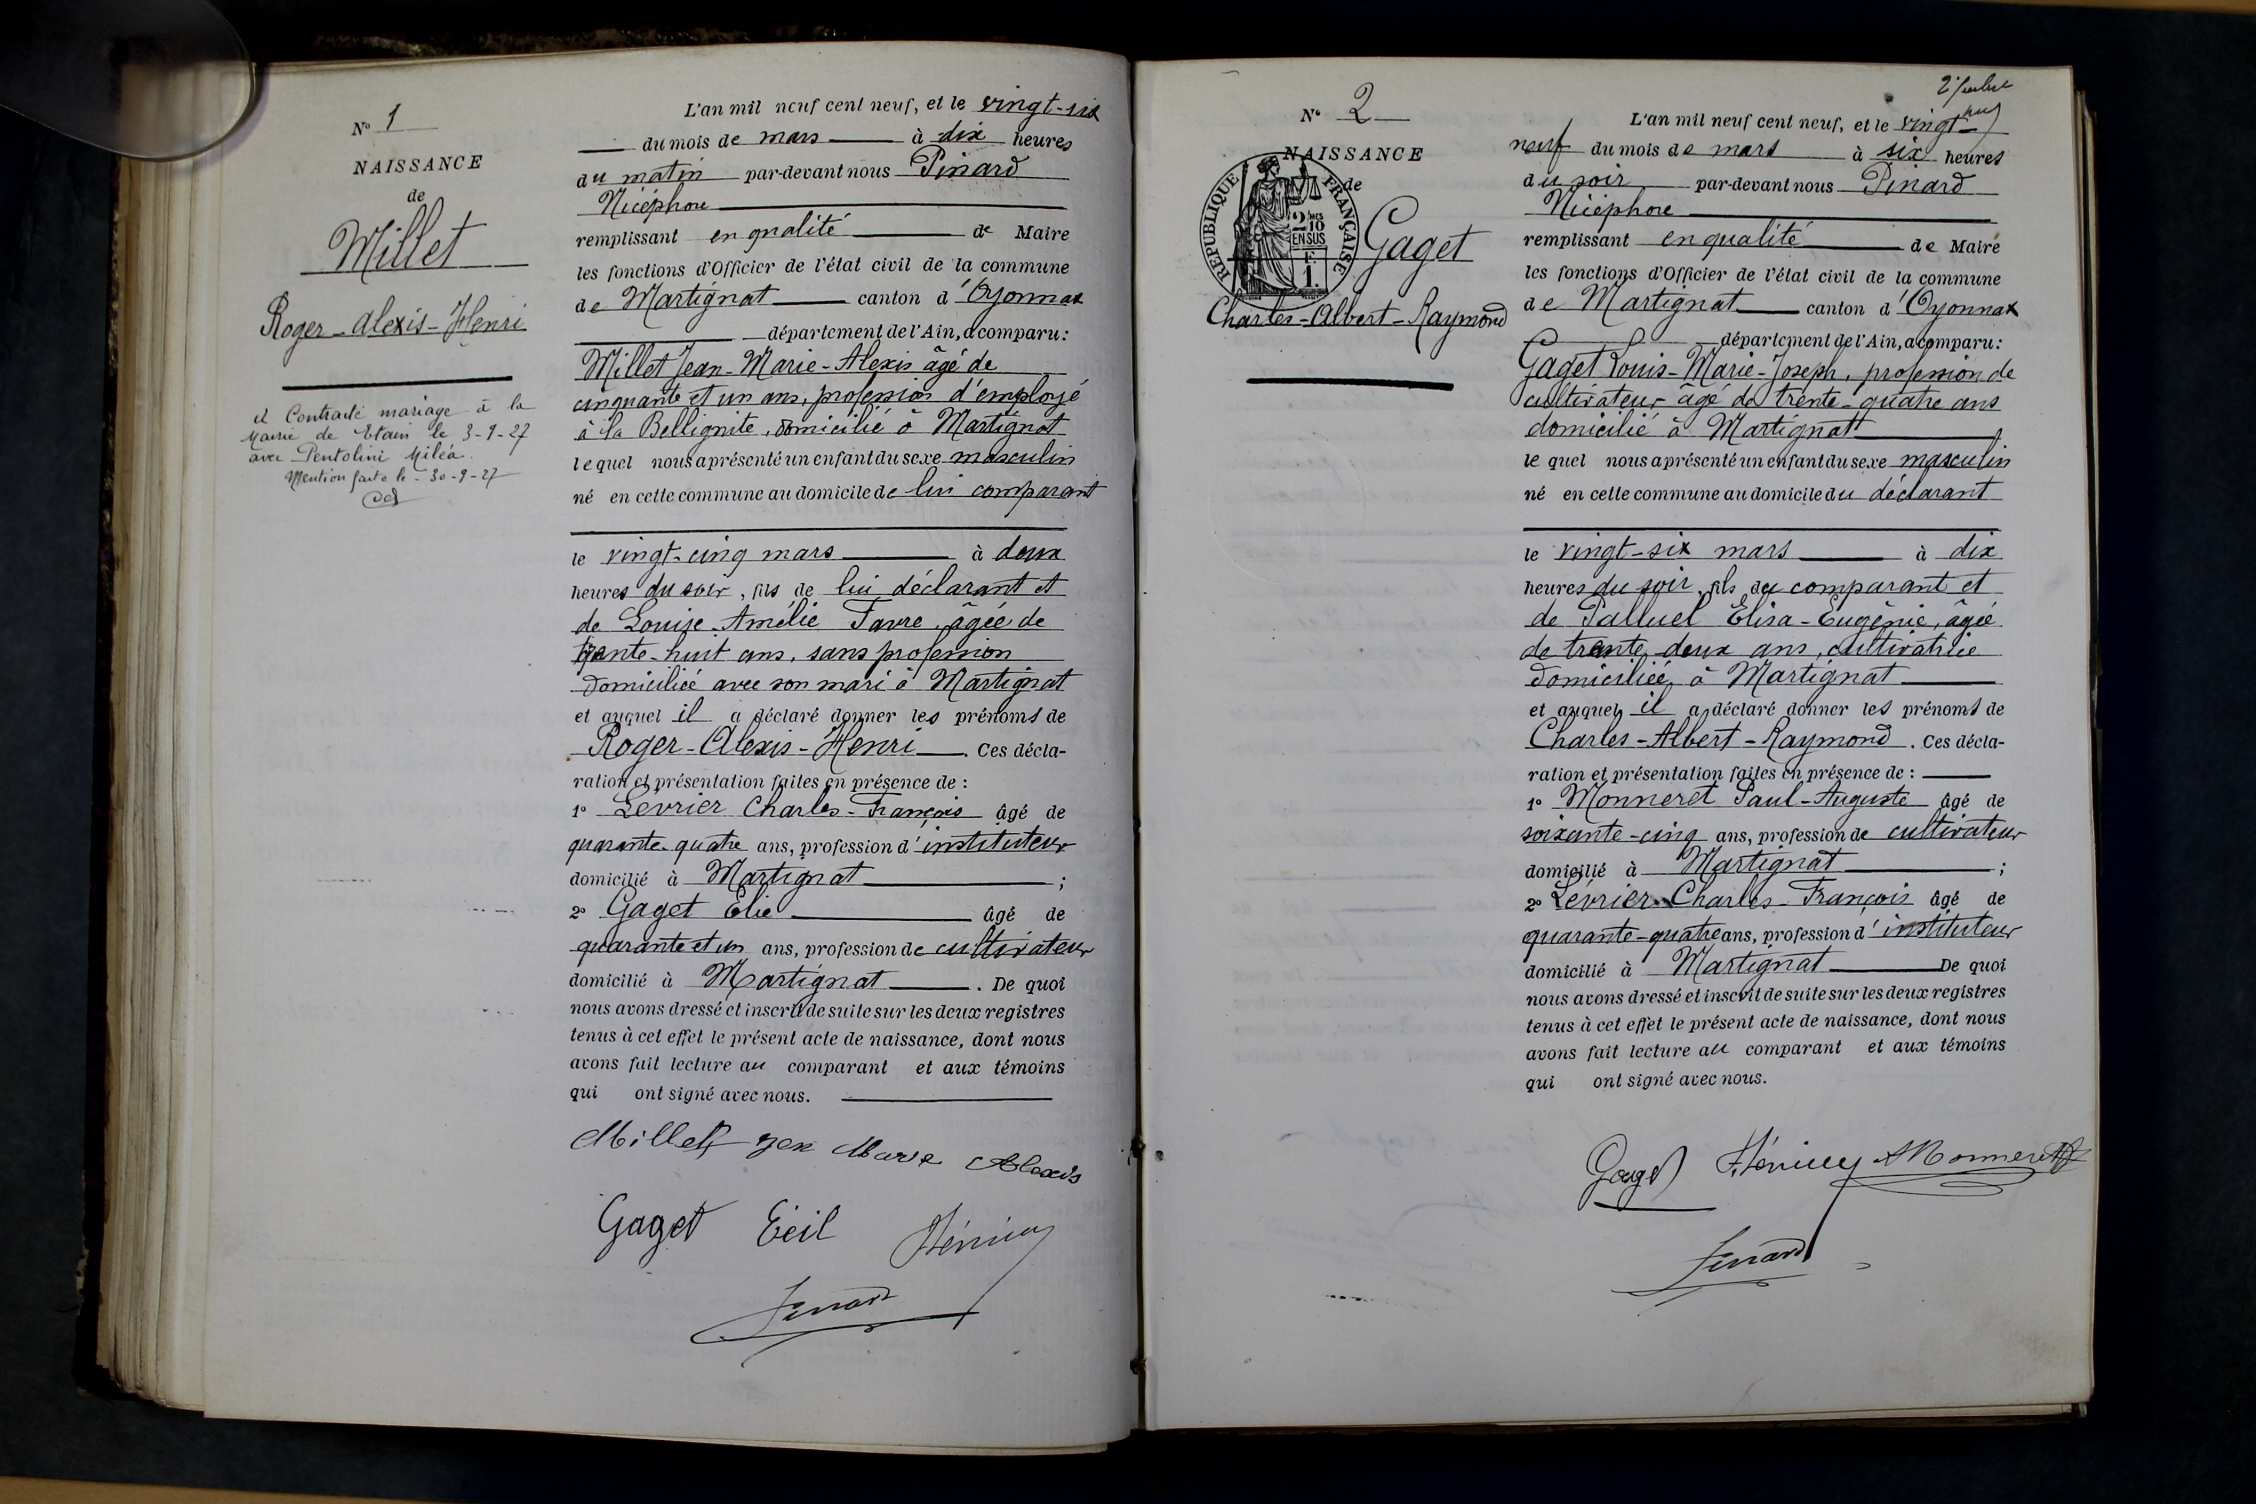 N° 1
NAISSANCE
de
Millet
Roger-Alexis-Henri
a Contracté mariage à la
Mairie de Etain le 3-9-27
avec Pentolini Miléa.
Mention faite le 30-9-27
L'an mil neuf cent neuf, et le vingt-six
du mois de mars à dix heures
du matin par-devant nous Pinard
Nicéphore
remplissant en qualité de Maire
les fonctions d'Officier de l'état civil de la commune
de Martignat canton d'Oyonnax
département de l'Ain, a comparu:
Millet Jean-Marie-Alexis âgé de
cinquante et un ans, profession d'employé
à la Bellignite, domicilié à Martignat
lequel nous a présenté un enfant du sexe masculin
né en cette commune au domicile de lui comparant
le vingt-cinq mars à deux
heures du soir, fils de lui déclarant et
de Louise-Amélie Favre, âgée de
trente-huit ans, sans profession
domiciliée avec son mari à Martignat
et auquel il a déclaré donner les prénoms de
Roger-Alexis-Henri. Ces décla-
ration et présentation faites en présence de:
1° Lévrier Charles-François âgé de
quarante-quatre ans, profession d'instituteur
domicilié à Martignat;
2° Gaget Elie âgé de
quarante et un ans, profession de cultivateur
domicilié à Martignat. De quoi
nous avons dressé et inscrit de suite sur les deux registres
tenus à cet effet le présent acte de naissance, dont nous
avons fait lecture au comparant et aux témoins
qui ont signé avec nous.
Millet Jen Marie Alexis
Gaget Eéil
Pinard
2e feuillet
N° 2
NAISSANCE
de
RÉPUBLIQUE FRANÇAISE
2/10 MES
EN SUS
F.
1.
Gaget
Charles-Albert-Raymond
L'an mil neuf cent neuf, et le vingt-neuf
neuf du mois de mars à six heures
du soir par-devant nous Pinard
Nicéphore
remplissant en qualité de Maire
les fonctions d'Officier de l'état civil de la commune
de Martignat canton d'Oyonnax
département de l'Ain, a comparu:
Gaget Louis-Marie-Joseph, profession de
cultivateur âgé de trente-quatre ans
domicilié à Martignat
lequel nous a présenté un enfant du sexe masculin
né en cette commune au domicile du déclarant
le vingt-six mars à dix
heures du soir, fils du comparant et
de Palluel Elisa-Eugénie, âgée
de trente deux ans, cultivatrice
domiciliée à Martignat
et auquel il a déclaré donner les prénoms de
Charles-Albert-Raymond. Ces décla-
ration et présentation faites en présence de:
1° Monneret Paul-Auguste âgé de
soixante-cinq ans, profession de cultivateur
domicilié à Martignat;
2° Lévrier Charles-François âgé de
quarante-quatre ans, profession d'instituteur
domicilié à Martignat De quoi
nous avons dressé et inscrit de suite sur les deux registres
tenus à cet effet le présent acte de naissance, dont nous
avons fait lecture au comparant et aux témoins
qui ont signé avec nous.
Gaget Monneret
Pinard